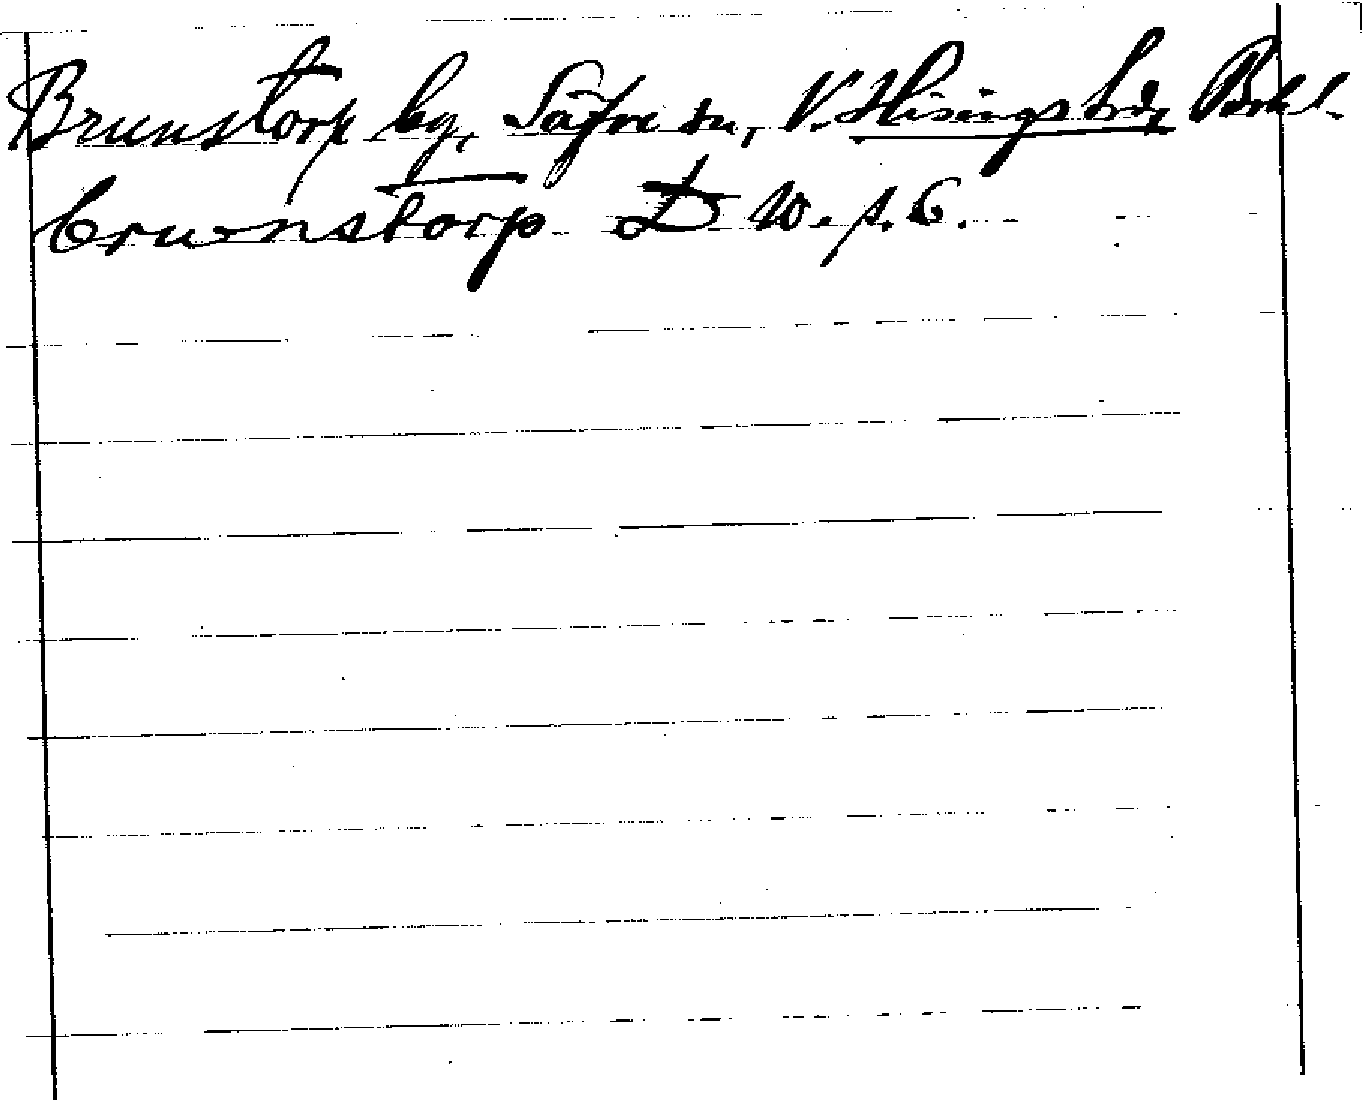 Brunstorp by, Säfve sn, V. Hisings hd, Bohl.
brunstorp D W. s. 6.